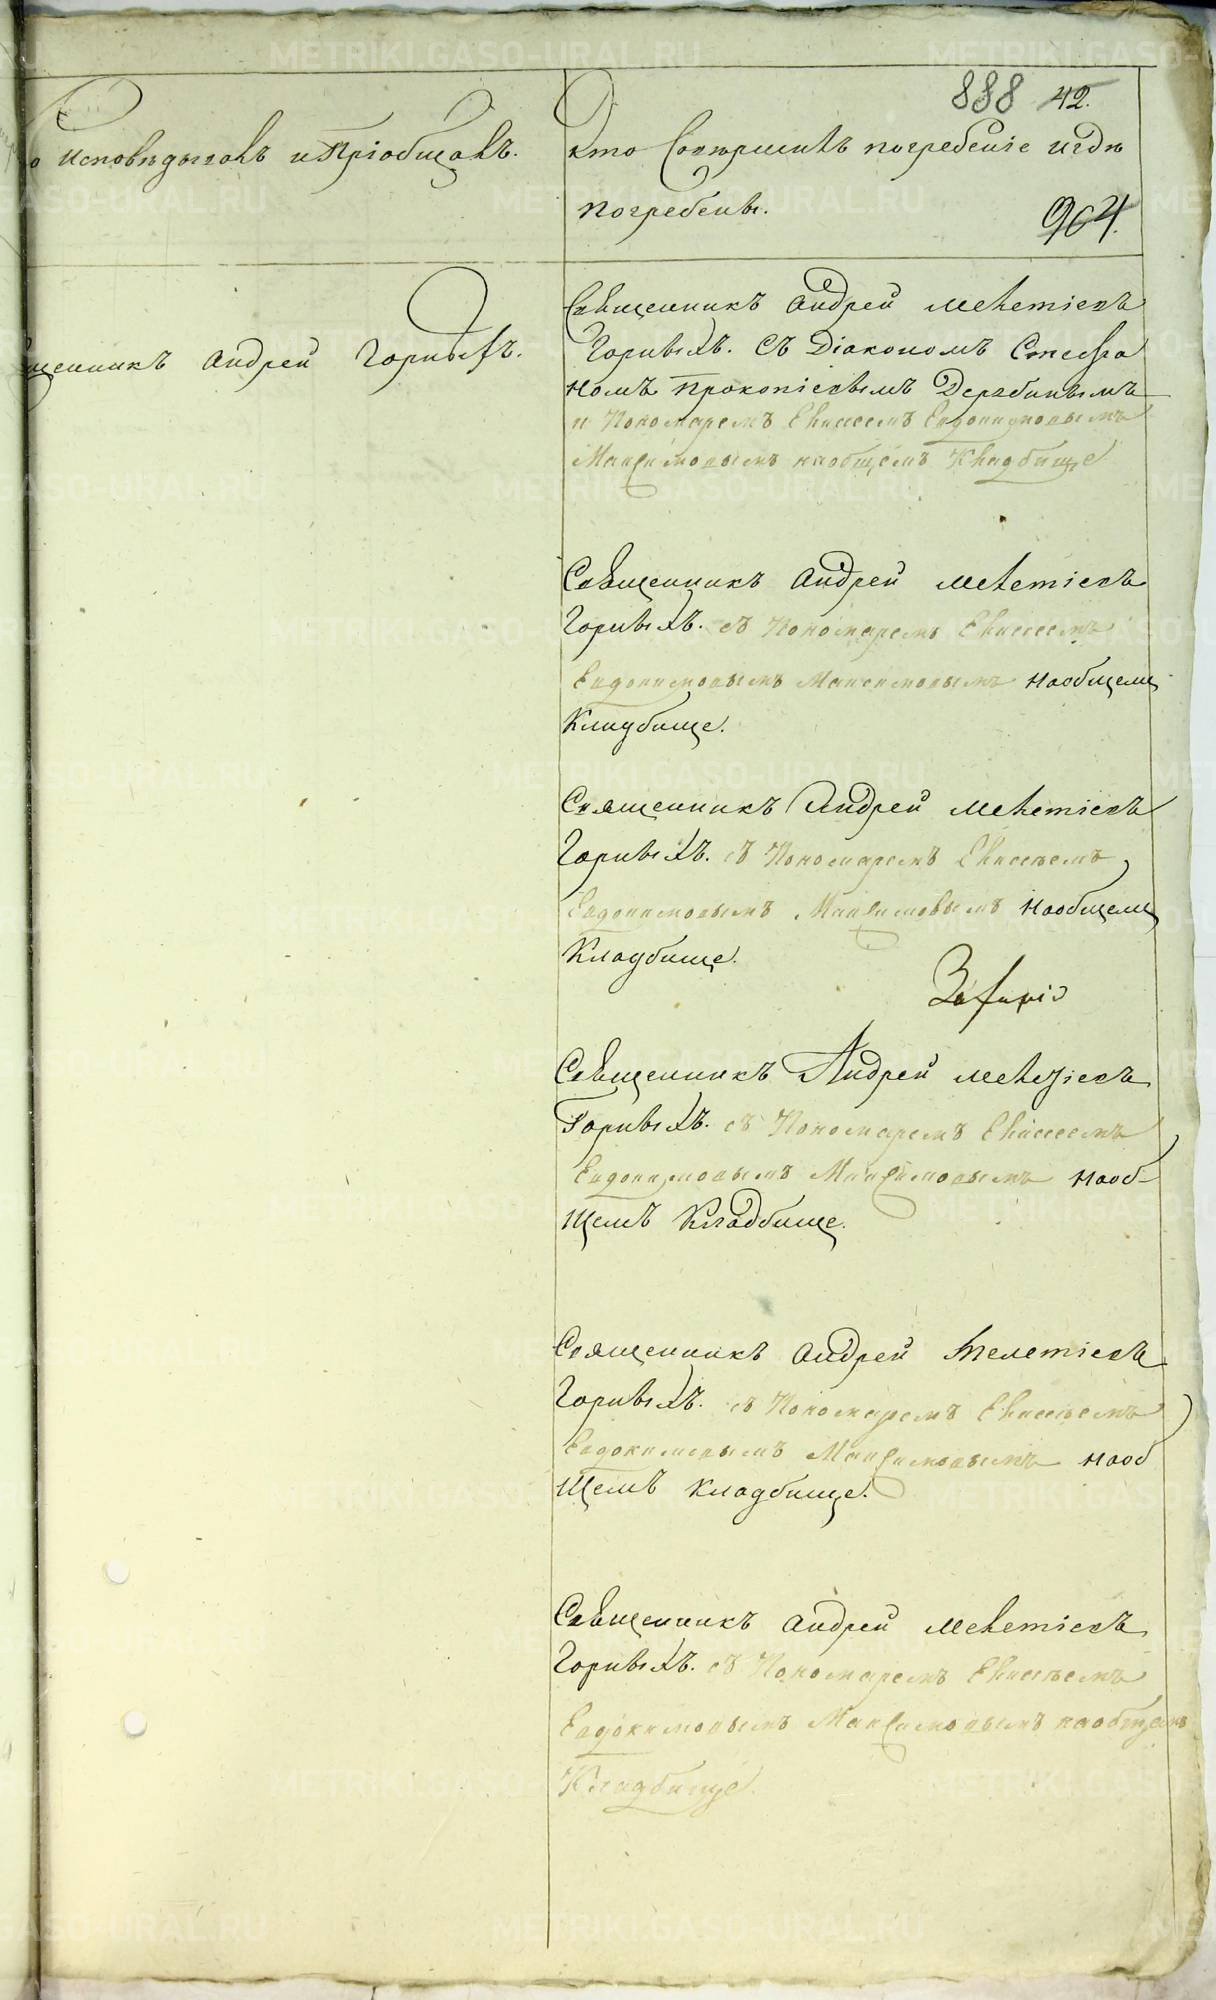 888 42.
о исповѣдывалъ и пріобщалъ.
Кто Совершилъ погребеніе и гдѣ
погребены.
904.
щенникъ Андрей Горныхъ.
Священникъ Андрей Мелетіевъ
Горныхъ. Съ Діакономъ Стефа
номъ Прокопіевымъ Дерябинымъ
и Пономаремъ Елисеемъ Евдокимовымъ
Максимовымъ на общемъ Кладбище
Священникъ Андрей Мелетіевъ
Горныхъ. съ Пономаремъ Елисеемъ
Евдокимовымъ Максимовымъ на общемъ
Кладбище.
Священникъ Андрей Мелетіевъ
Горныхъ. съ Пономаремъ Елисѣемъ
Евдокимовымъ Максимовымъ на общемъ
Кладбище.
Священникъ Андрей Мелетіевъ
Горныхъ. съ Пономаремъ Елисеемъ
Евдокимовымъ Максимовымъ на об-
щемъ Кладбище.
Священникъ Андрей Мелетіевъ
Горныхъ. съ Пономаремъ Елисѣемъ
Евдокимовымъ Максимовымъ на об
щемъ Кладбище.
Священникъ Андрей Мелетіевъ
Горныхъ. съ Пономаремъ Елисѣемъ
Евдокимовымъ Максимовымъ на общемъ
Кладбище.
METRIKI.GASO-URAL.RU